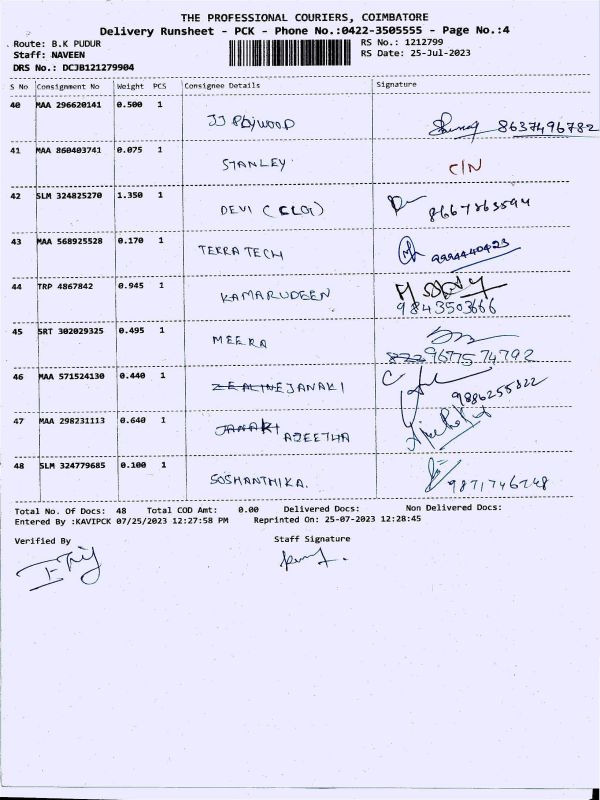 THE PROFESSIONAL COURIERS, COIMBATORE
Delivery Runsheet - PCK - Phone No.:0422-3505555 - Page No.:4
Route: B.K PUDUR RS No.: 1212799
Staff: NAVEEN RS Date: 25-Jul-2023
DRS No.: DCJB121279904
S No Consignment No Weight PCS Consignee Details Signature
40 MAA 296620141 0.500 1
JJ Plywood 8637496782
41 MAA 860403741 0.075 1
STANLEY C/N
42 SLM 324825270 1.350 1
DEVI 8667863594
43 MAA 568925528 0.170 1
TERRA TECH 9994440423
44 TRP 4867842 0.945 1
KAMARUDEEN
9843503666
45 SRT 302029325 0.495 1
MEERA
9677574792
46 MAA 571524130 0.440 1
JANAKI 9886255822
47 MAA 298231113 0.640 1
JANAKI AJEETHA
48 SLM 324779685 0.100 1
SOSHANTHIKA. 9871746248
Total No. Of Docs: 48 Total COD Amt: 0.00 Delivered Docs: Non Delivered Docs:
Entered By :KAVIPCK 07/25/2023 12:27:58 PM Reprinted On: 25-07-2023 12:28:45
Verified By Staff Signature